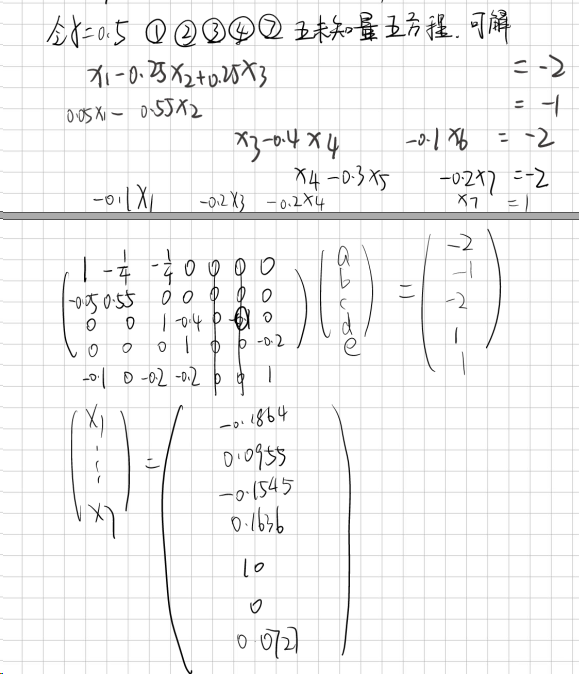 令γ=0.5 ①②③④⑦ 五未知量五方程.可解
x₁-0.25x₂+0.25x₃ = -2
0.05x₁- 0.55x₂ = -1
x₃-0.4x₄ -0.1x₆ = -2
x₄-0.3x₅ -0.2x₇ = -2
-0.1x₁ -0.2x₃ -0.2x₄ x₇ = 1
1 -1/4 -1/4 0 0 0 0 a -2
-0.05 0.55 0 0 0 0 0 b -1
0 0 1 -0.4 0 0 c = -2
0 0 0 1 0 0 -0.2 d 1
-0.1 0 -0.2 -0.2 0 0 1 e 1
x₁ -0.1864
⋮ 0.0955
= -0.1545
x₇ 0.1636
10
0
0.0727